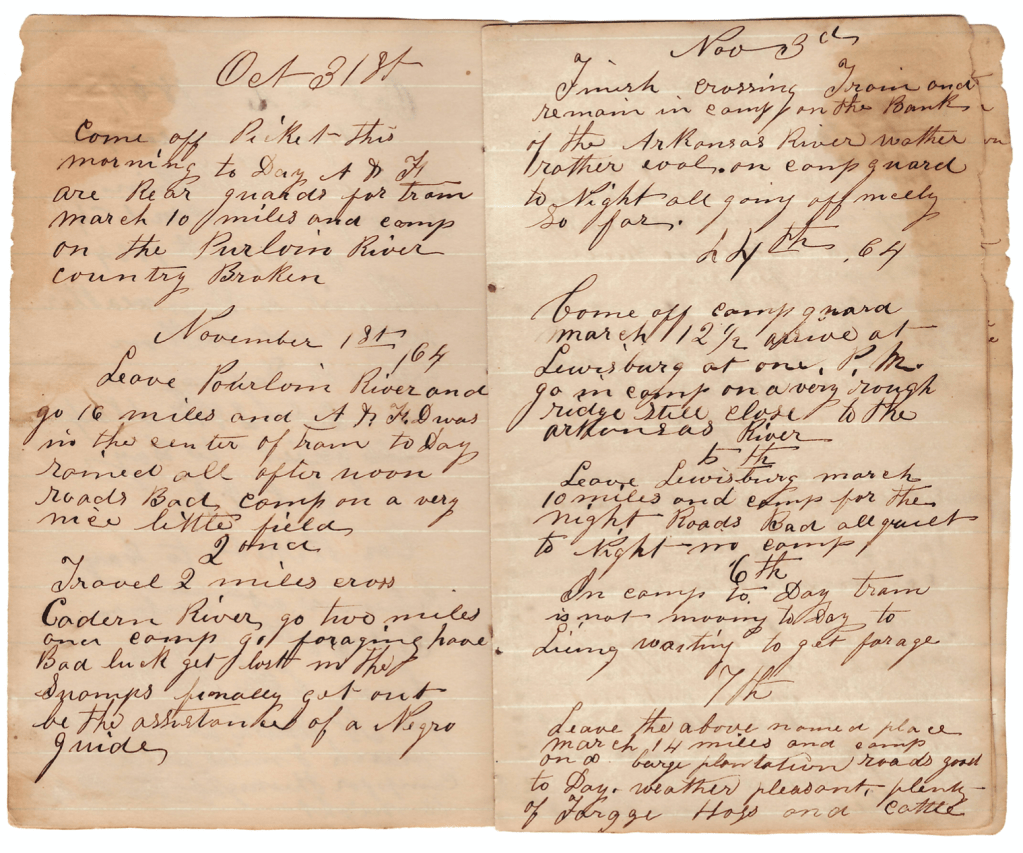 Oct 31st
Come off Picket this
morning to Day A & H
are Rear guards for tram
march 10 miles and camp
on the Purloin River
country Broken
November 1st
,64
Leave Pourloin River and
go 16 miles and A & H. D was
in the center of tram to Day
rained all after noon
roads Bad camp on a very
nice little field
2 ond
Travel 2 miles cross
Cadern River go two miles
and camp go foraging have
Bad luck get lost in the
Swamps finally get out
be the assistance of a Negro
guide
Nov 3d
Finish crossing Train and
remain in camp on the Bank
of the Arkansas River wather
rather coal. on camp guard
to Night all going off
so far.
4th .64
Come off camp guard
march 12 1/2 arrive at
Lewisburg at one. P. M.
go in camp on a very rough
ridge still close to the
arkansas River
5 th
Leave Lewisburg march
10 miles and camp for the
night Roads Bad all quiet
to Night no camp
6th
In camp to Day tram
is not moving to Day to
waiting to get forage
7th
Leave the above named place
march 14 miles and camp
on a large plantation roads good
to Day. weather pleasant. plenty
of Forage Hogs and cattle